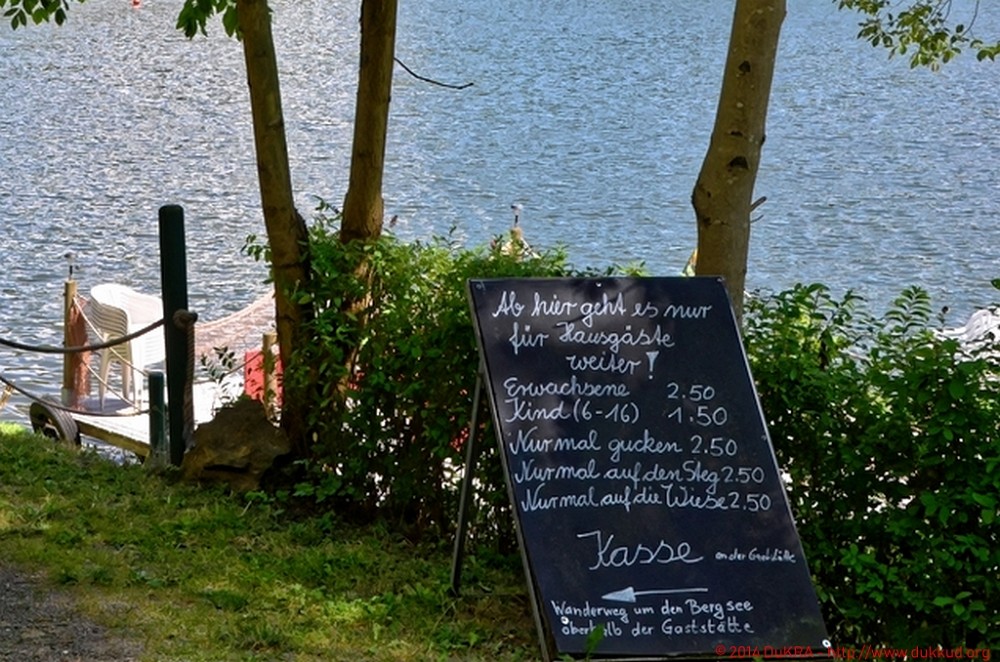 Ab hier geht es nur
für Hausgäste
weiter!
Erwachsene 2.50
Kind (6-16) 1.50
Nur mal gucken 2.50
Nur mal auf den Steg 2.50
Nur mal auf die Wiese 2,50
Kasse an der Gaststätte
Wanderweg um den Bergsee
oberhalb der Gaststätte
© 2014 DuKRA - http://www.dukkud.org